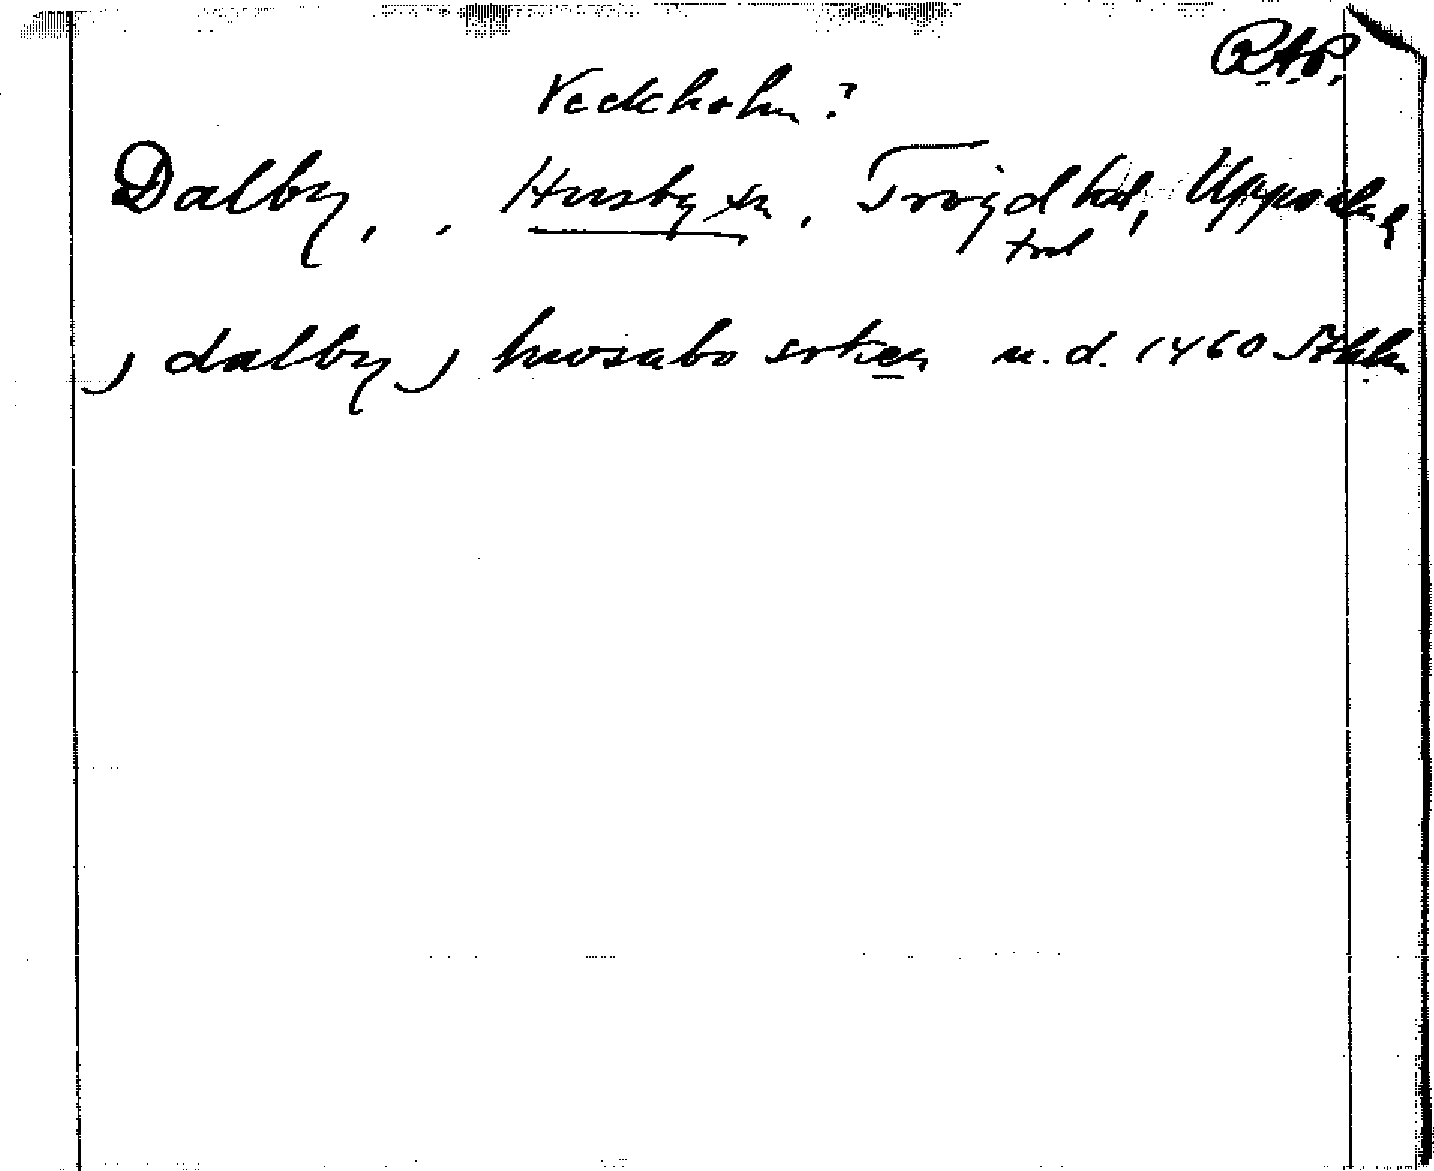 RAP.
Veckholm?
Dalby, , Husby sn, Trögd hd, Uppsala l
trol
j dalby j hwsabo soken u.d. 1460 Sthlm